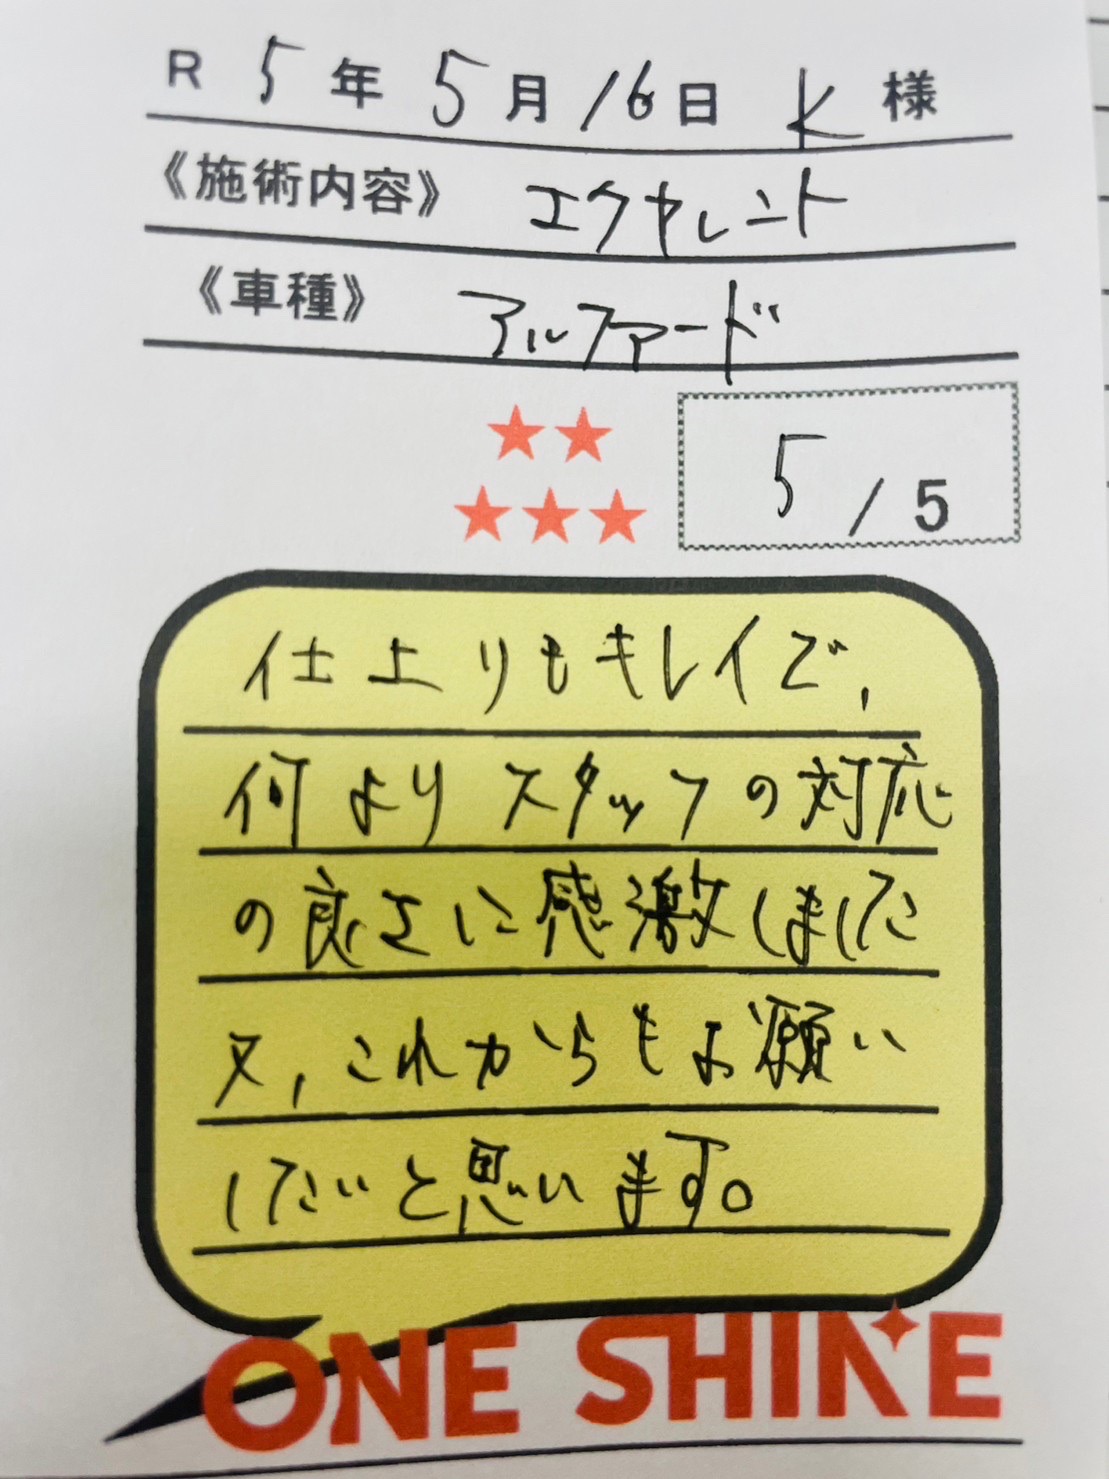 R 5年 5月16日 K様
《施術内容》 エクセレント
《車種》 アルファード
5/5
仕上りもキレイで,
何よりスタッフの対応
の良さに感激しました
又,これからもお願い
したいと思います。
ONE SHINE